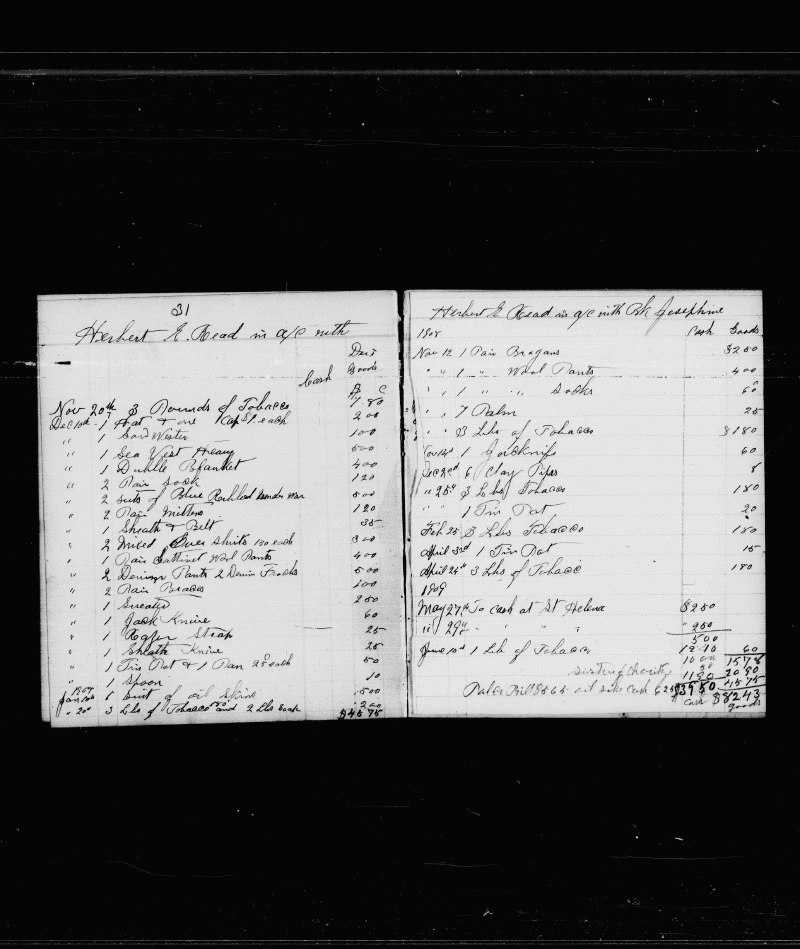 31
Herbert E. Read in a/c with
Cash Goods
$ C
Nov 20th 3 Pounds of Tobacco 1.80
Dec 10th 1 Hat & one Cap $1. each 200
" 1 Sou Wester 100
" 1 Sea Vest Heavy 500
" 1 Duble Blanket 400
" 2 Pair Sock 120
" 2 suts of Blue under war 500
" 2 Pair Mittens 120
" 1 Sheath & Belt 35
" 2 Mixed Over Shirts 150 each 300
" 1 Pair Wool Pants 400
" 2 Denim Pants 2 Denim Frocks 500
" 2 Pair Braces 100
" 1 Sweater 250
" 1 Jack Knive 60
" 1 Strap 25
" 1 Sheath Knive 25
" 1 Tin Pot & 1 Pan 25 each 50
" 1 Spoon 10
Jan 1907 1 Suit of oil skins 500
" 20th 3 Lbs of Tobacco and 2 Lbs 200
$45 75
Herbert E Read in a/c with Bk Josephine
1908 Cash Goods
Nov 12 1 Pair Brogans $250
" " 1 " Wool Pants 400
" " 1 " " Socks 60
" " 1 Palm 25
" " 3 Lbs of Tobacco $180
Nov 14th 1 knife 60
Dec 22d 6 Clay Pipes 8
" 25th 3 Lbs Tobacco 180
" " 1 Tin Pot 20
Feb 25 3 Lbs Tobacco 180
April 3rd 1 Tin Pot 15
April 24th 3 Lbs of Tobacc 180
1909
May 27th To cash at St Helena $250
" 29th " " " " 250
500
June 10th 1 Lb of Tobacco 12.10 60
10 00 1578
Sisters of Charity 50 2090
1190 4575
Bill $5.65 oil cash $39 50 $8243
cash goods